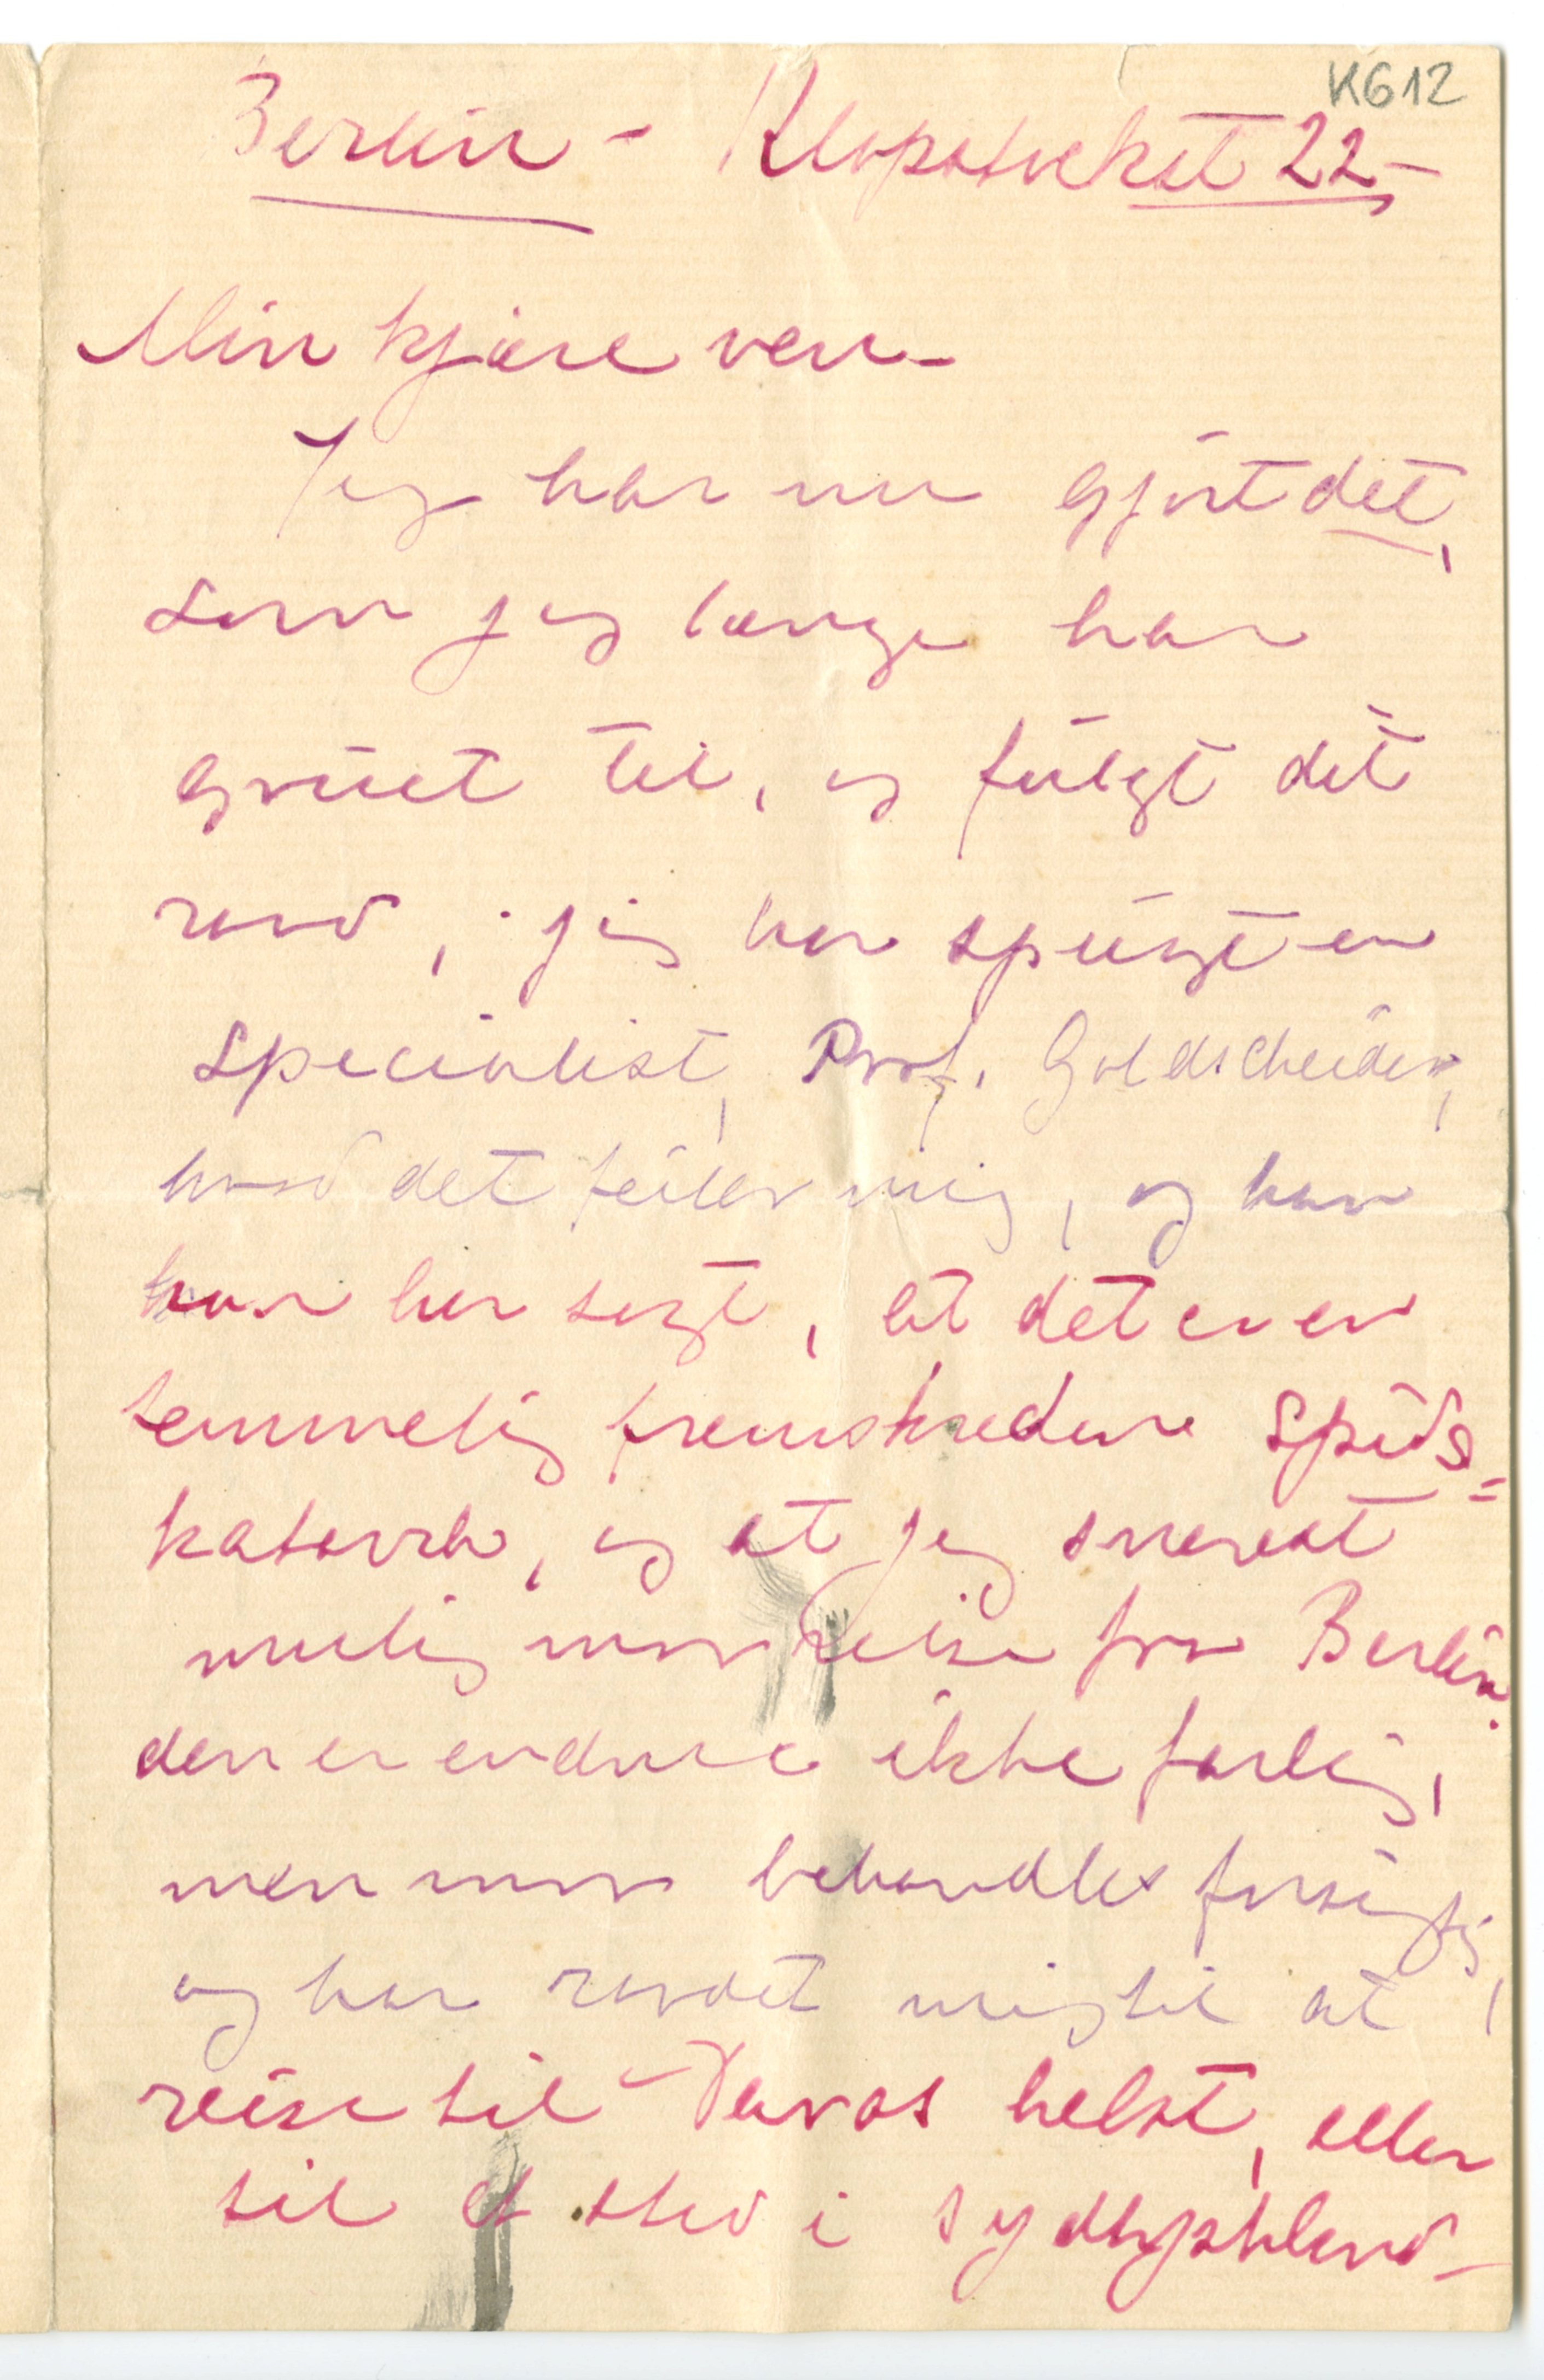 K612
Berlin - Klopstockst 22 -
Min kjære ven -
Jeg har nu gjort det,
som jeg længe har
gruet til, og fulgt dit
raad, jeg har spurgt en
specialist, Prof. Goldscheider,
hvad det feiler mig, og han
har her sagt, at det er en
temmelig fremskreden spids=
katarrh, og at jeg snarest
mulig maa reise fra Berlin.
den er endnu ikke farlig,
men maa behandles forsigtig,
og har raadet mig til at
reise til Davos helst, eller
til et sted i sydtyskland -